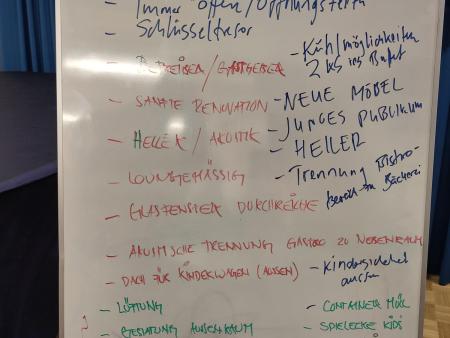 - Immer offen/Öffnungszeiten
- Schlüsseltresor
- BETREIBER/GASTGEBER
- Kühlmöglichkeiten
2 ins Bufet
- SANFTE RENOVATION
- NEUE MÖBEL
- HELLER / AKUSTIK
- JUNGES PUBLIKUM
- HELLER
- LOUNGEMÄSSIG
- Trennung Bistro-
bereich zu Bäckerei
- GLASFENSTER DURCHREICHE
- AKUSTISCHE TRENNUNG GASTRO ZU NEBENRAUM
- DACH FÜR KINDERWAGEN (AUSSEN)
- Kindersicherheit
aussen
- LÜFTUNG
- CONTAINER MÜLL
- BESTUHLUNG AUSSENRAUM
- SPIELECKE KIDS